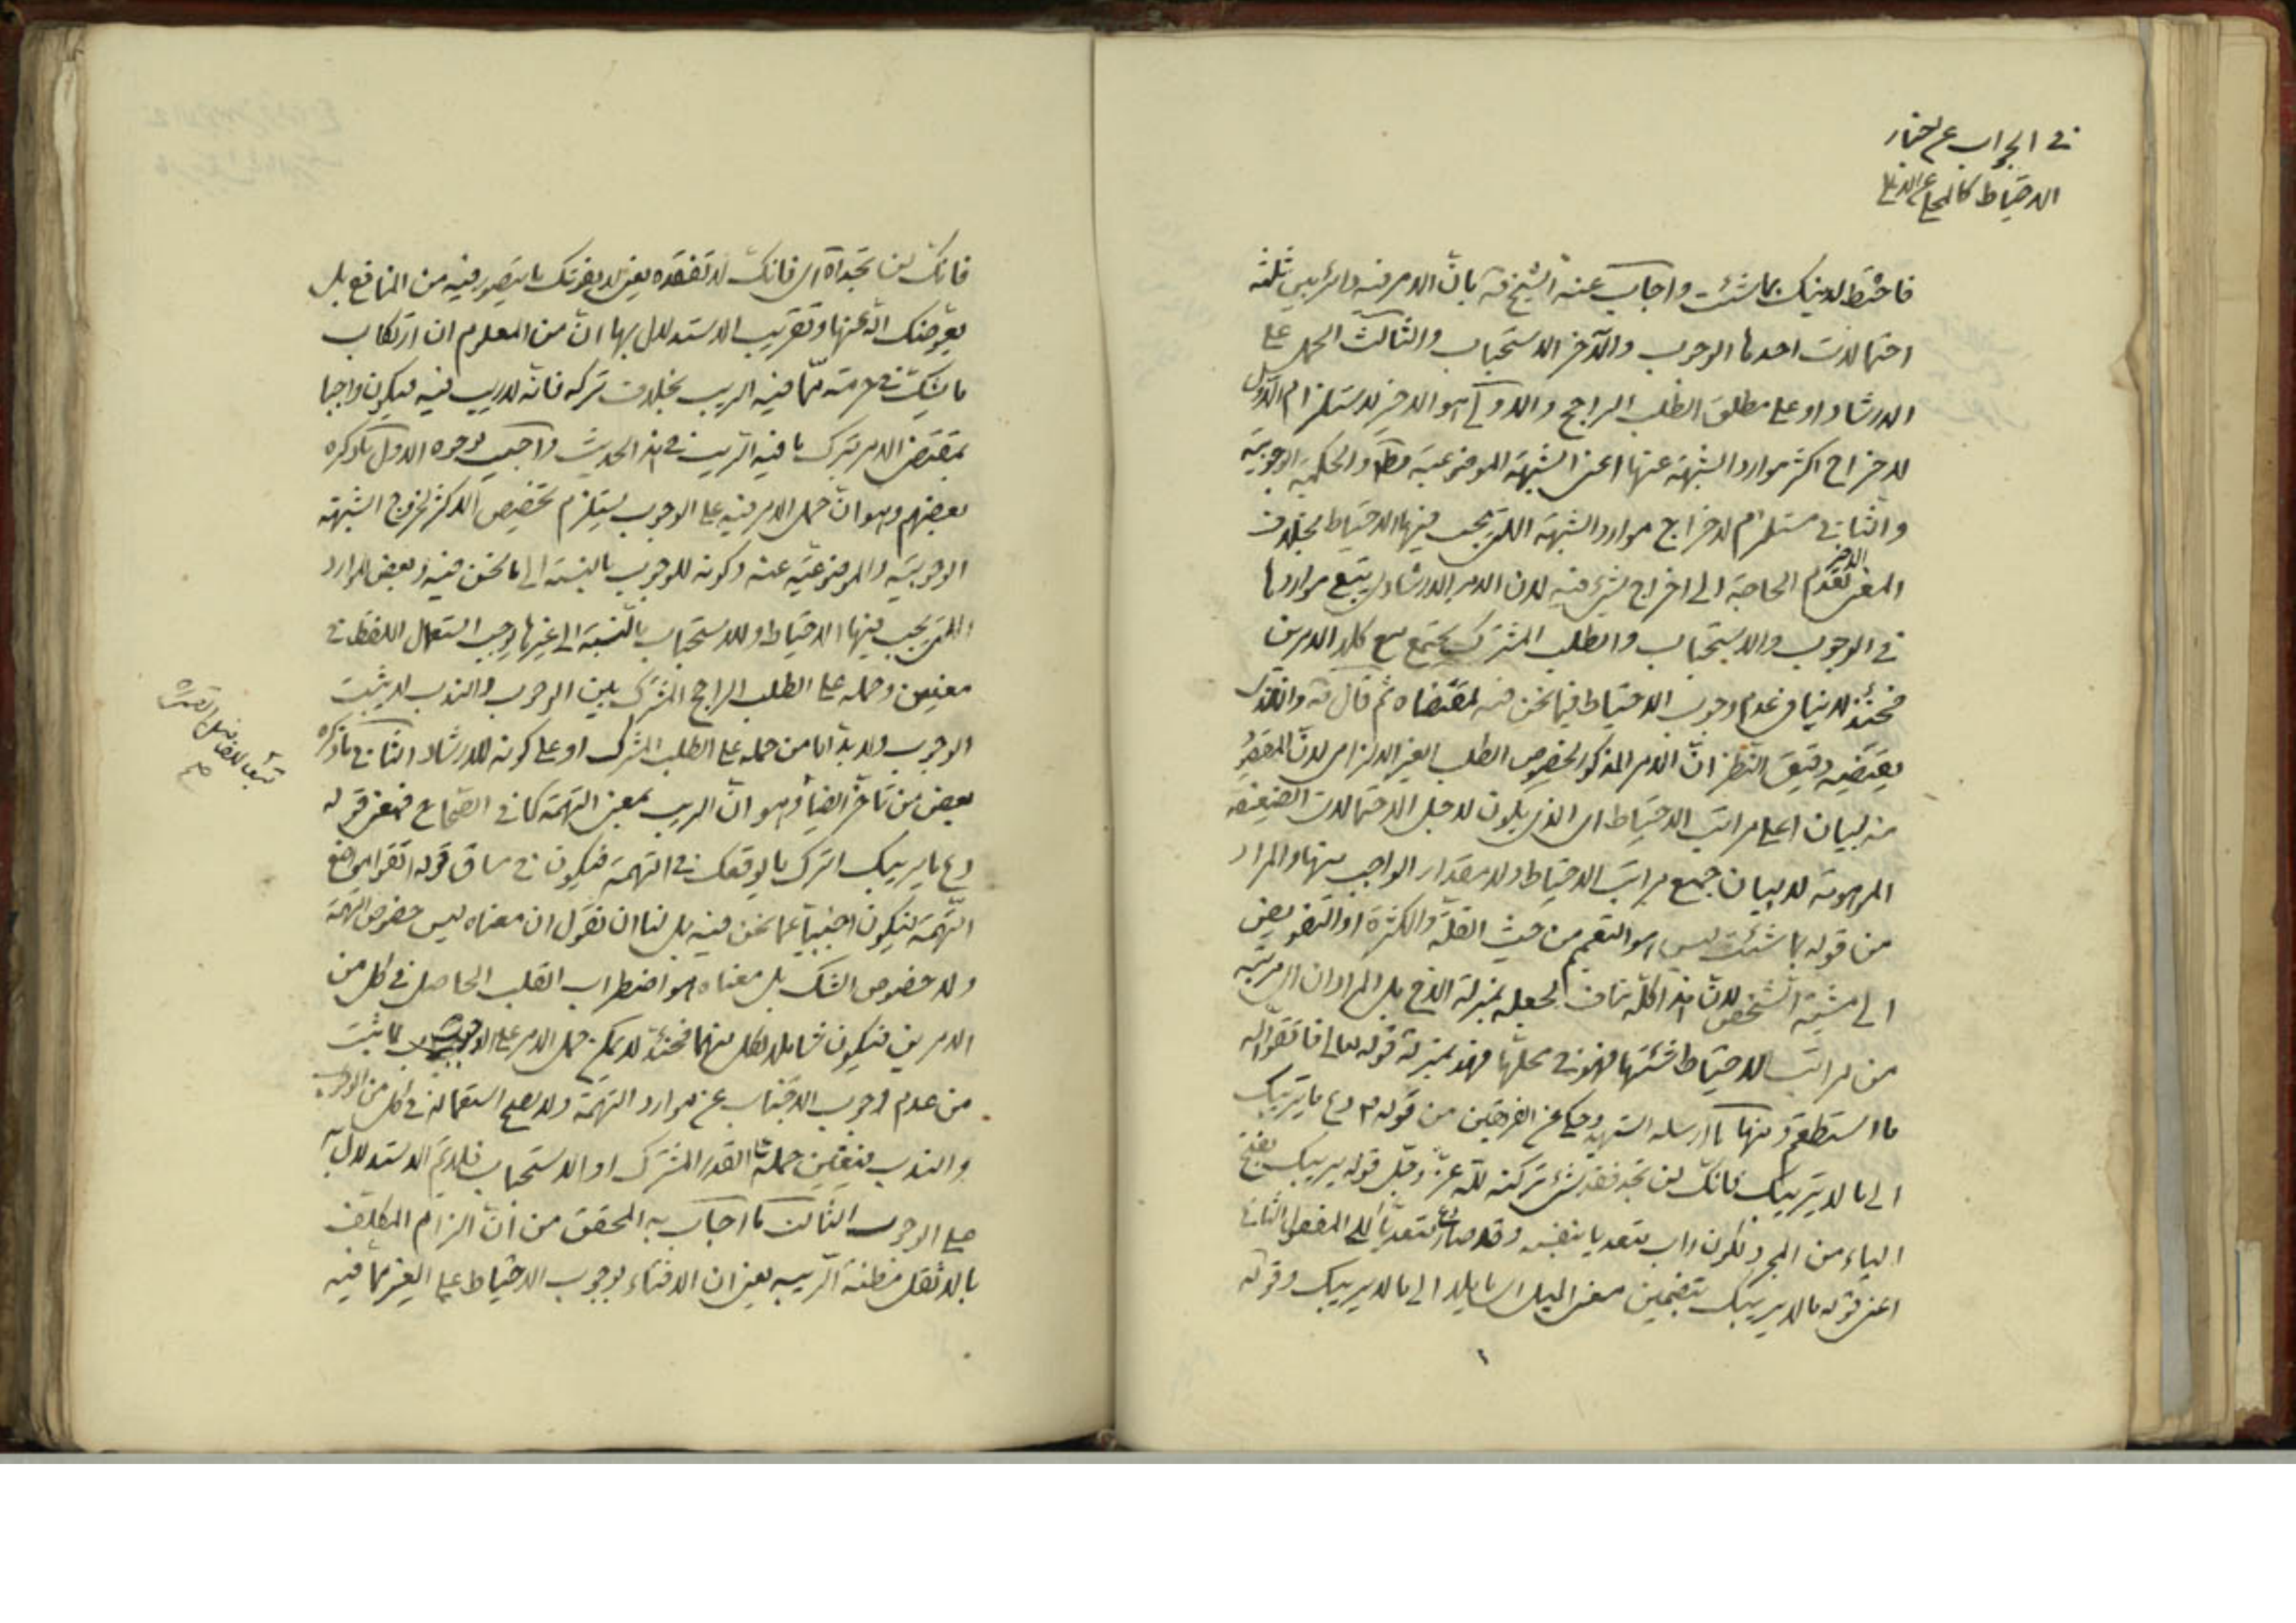 في الجواب عن اخبار
الاحتياط
فاحتط لدينك بما شئت واجاب عنه الشيخ قده بان الامر فيه دائر بين ثلثة
احتمالات احدها الوجوب والآخر الاستحباب والثالث الحمل على
الارشاد او على مطلق الطلب الراجح والاولى هو الاخير لاستلزام الاول
لاخراج اكثر موارد الشبهة عنها اعني الشبهة الموضوعية مط والحكمية الوجوبية
والثاني مستلزم لاخراج موارد الشبهة اللتي يجب فيها الاحتياط بخلاف
الاخير
المعنى لعدم الحاجة الى اخراج شئ فيه لان الامر الارشادى يتبع مواردها
في الوجوب والاستحباب والطلب المشترك يجتمع مع كلا الامرين
فحينئذ لا ينافى عدم وجوب الاحتياط فيما نحن فيه لمقتضاه ثم قال قده والذى
يقتضيه دقيق النظر ان الامر المذكور لخصوص الطلب الغير الالزامى لان المقصود
منه لبيان اعلى مراتب الاحتياط اى الذى يكون لاجل الاحتمالات الضعيفة
الموهومة لا بيان جميع مراتب الاحتياط ولا مقدار الواجب منها والمراد
من قوله بما شئت ليس هو التعميم من حيث القلة والكثرة او التفويض
الى مشية الشخص لان هذا كله مناف لجعله بمنزلة الاخ بل المراد ان اى مرتبة
من مراتب الاحتياط شئتها فهو في محلها فهذا بمنزلة قوله تعالى فاتقوا الله
ما استطعتم ومنها ما ارسله الشهيد وحكى عن الفريقين من قوله ص دع ما يريبك
الى ما لا يريبك فانك لن تجد فقد شئ تركته لله عز وجل قوله يريبك بفتح
الياء من المجرد لكون راب متعديا بنفسه وقد صار دع متعديا الى المفعول الثاني
اعني قوله ما لا يريبك بتضمين معنى الميل اى مايلا الى ما لا يريبك وقوله
فانك لن تجد اه اى فانك لا تفقده يعنى لا يفوتك ما يتصور فيه من المنافع بل
يعوضك الله عنها وتقريب الاستدلال بها ان من المعلوم ان ارتكاب
ما يشك في حرمته مما فيه الريب بخلاف تركه فانه لا ريب فيه فيكون واجبا
بمقتضى الامر بترك ما فيه الريب في هذا الحديث واجيب بوجوه الاول ما ذكره
بعضهم وهو ان حمل الامر فيه على الوجوب يستلزم تخصيص الاكثر لخروج الشبهة
الوجوبية والموضوعية عنه وكونه للوجوب بالنسبة الى ما نحن فيه وبعض الموارد
اللتي يجب فيها الاحتياط وللاستحباب بالنسبة الى غيرها يوجب استعمال اللفظ في
معنيين وحمله على الطلب الراجح المشترك بين الوجوب والندب لا يثبت
الوجوب ولا بد اما من حمله على الطلب المشترك او على كونه للارشاد الثاني ما ذكره
بعض من تاخر ايضا وهو ان الريب بمعنى التهمة كما في الصحاح فمعنى قوله
دع ما يريبك اترك ما يوقعك في التهمة فيكون في مساق قوله اتقوا مواضع
التهمة فيكون اجنبيا عما نحن فيه بل لنا ان نقول ان معناه ليس خصوص التهمة
ولا خصوص الشك بل معناه هو اضطراب القلب الحاصل في كل من
الامرين فيكون شاملا لكل منهما فحينئذ لا يمكن حمل الامر على الوجوب لما ثبت
من عدم وجوب الاجتناب عن موارد التهمة ولا يصح استعماله في كل من الوجوب
والندب فيتعين حمله على القدر المشترك او الاستحباب فلا يتم الاستدلال به
على الوجوب الثالث ما اجاب به المحقق من ان الزام المكلف
بالاثقل مظنة الريبة يعنى ان الافتاء بوجوب الاحتياط على الغير مما فيه
تبعا للفاضل